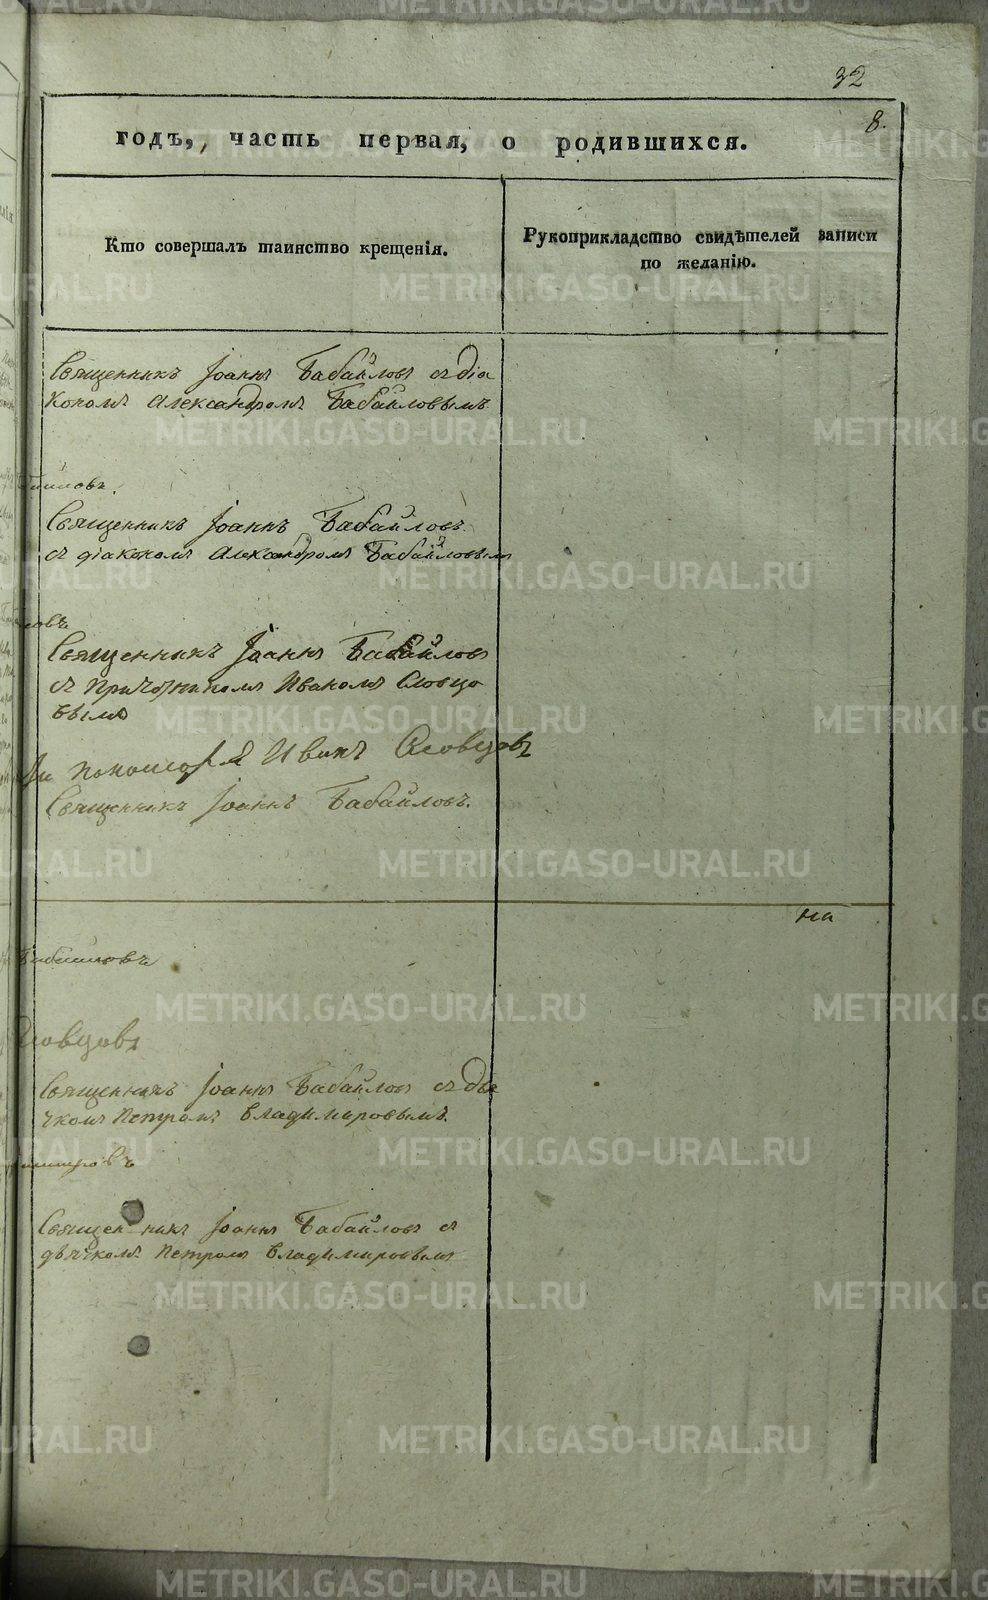 32
8.
годъ, часть первая, о родившихся.
Кто совершалъ таинство крещенія.
Рукоприкладство свидѣтелей записи
по желанію.
Священникъ Іоаннъ Бабайловъ съ діа
кономъ Александромъ Бабайловымъ
Священникъ Іоаннъ Бабайловъ
съ діакономъ Александромъ Бабайловымъ
ловъ
Священникъ Іоаннъ Бабайловъ
съ причетникомъ Иваномъ Словцо
вымъ
Иванъ Словцовъ
Священникъ Іоаннъ Бабайловъ.
на
Бабайловъ
Словцовъ
Священникъ Іоаннъ Бабайловъ съ дья
чкомъ Петромъ Владимировымъ.
Священникъ Іоаннъ Бабайловъ съ
дьячкомъ Петромъ Владимировымъ
METRIKI.GASO-URAL.RU